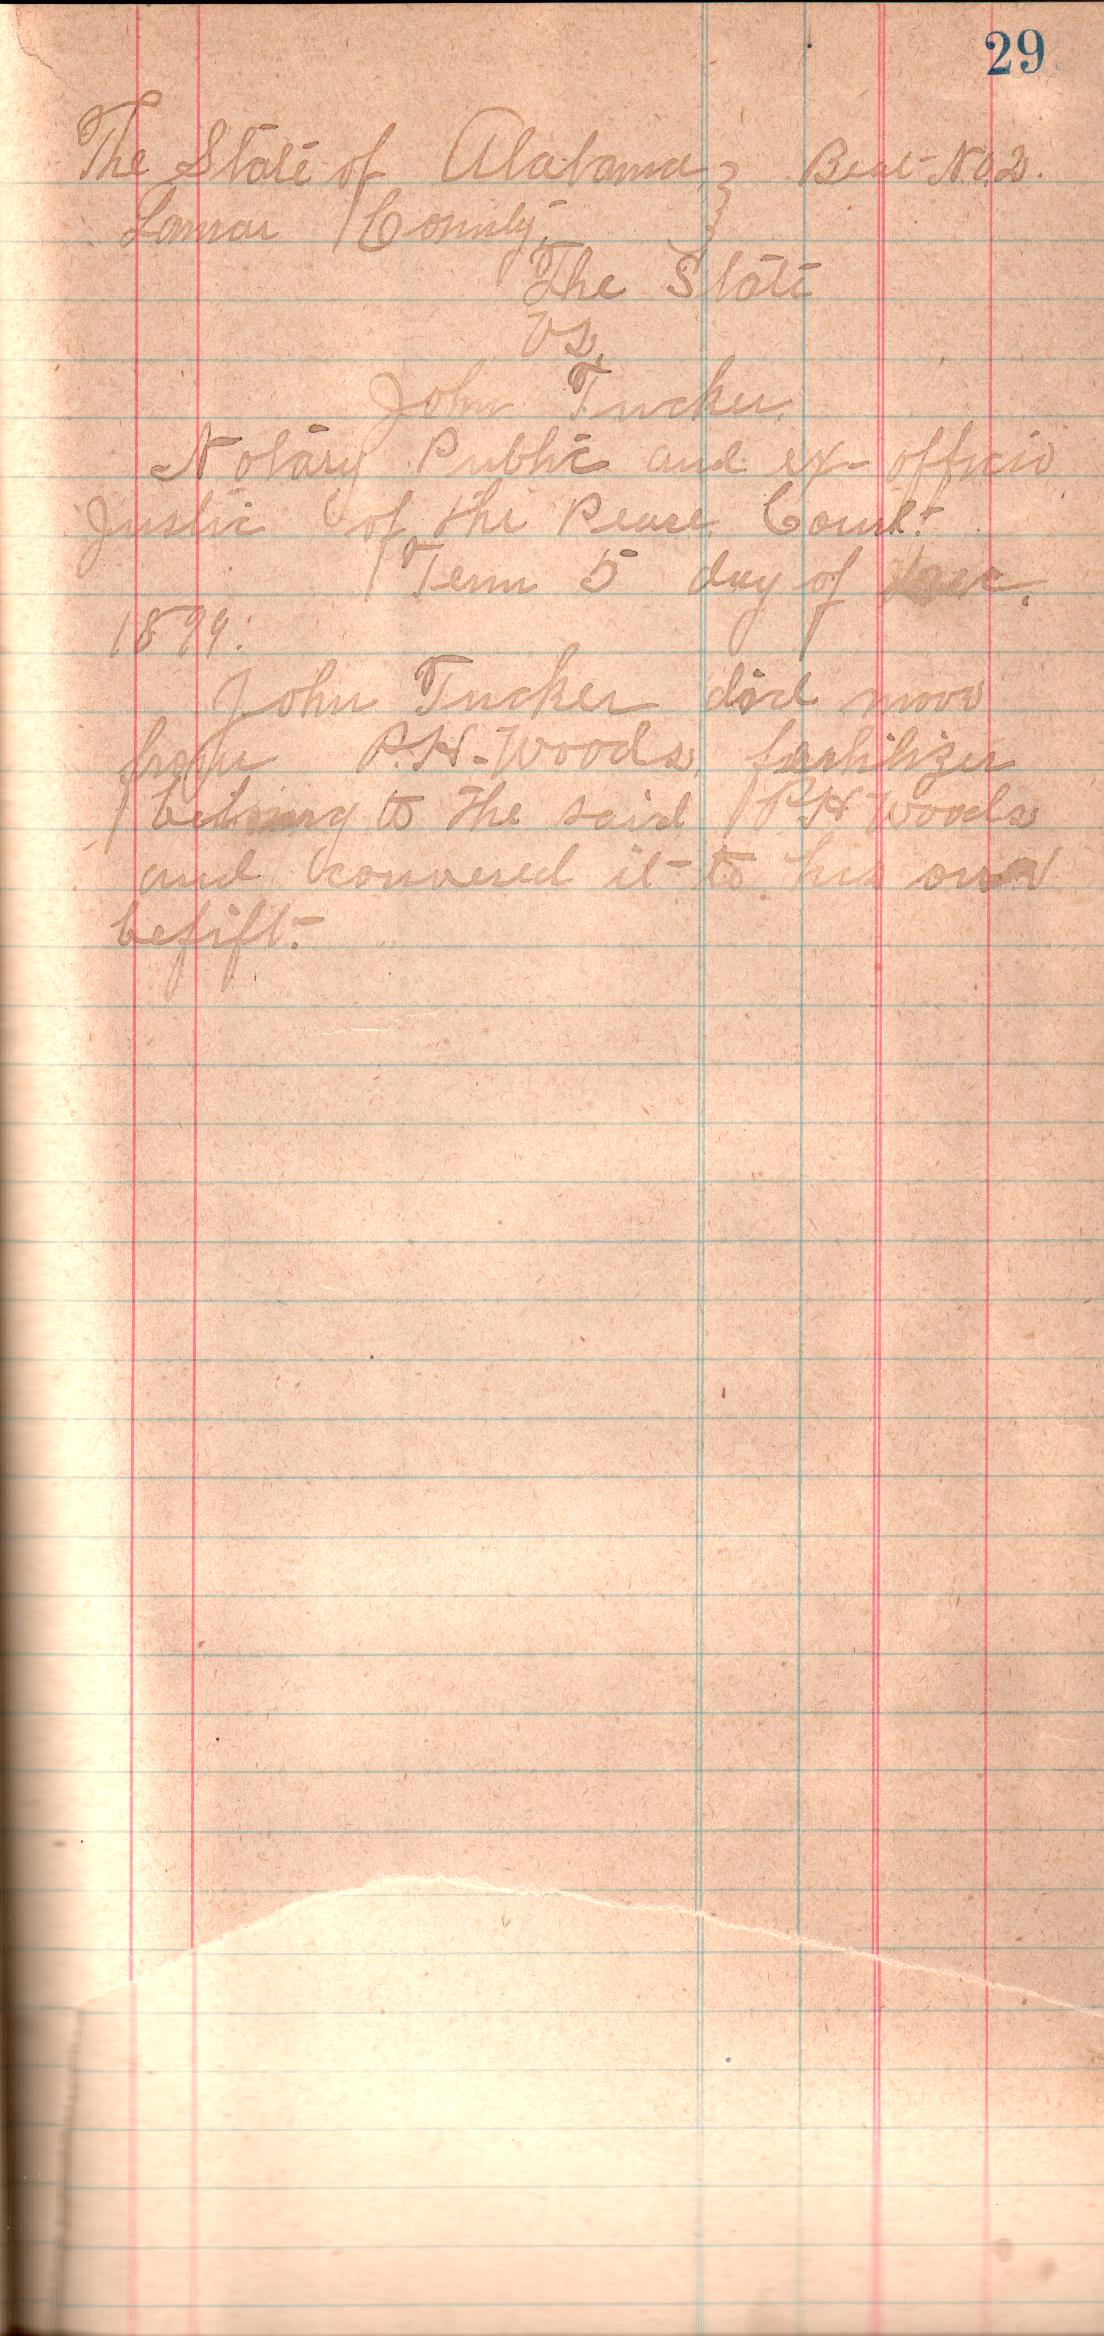 29
The State of Alabama } Beat No 2.
Lamar County. }
The State
Vs.
John Tucker.
Notary Public and ex-officio
Justic of the Peace Court.
Term 5 day of Dec.
1899.
John Tucker did moov
from P.H. Woods fertilizer
beloning to the said P H Woods
and convered it to his own
befift.